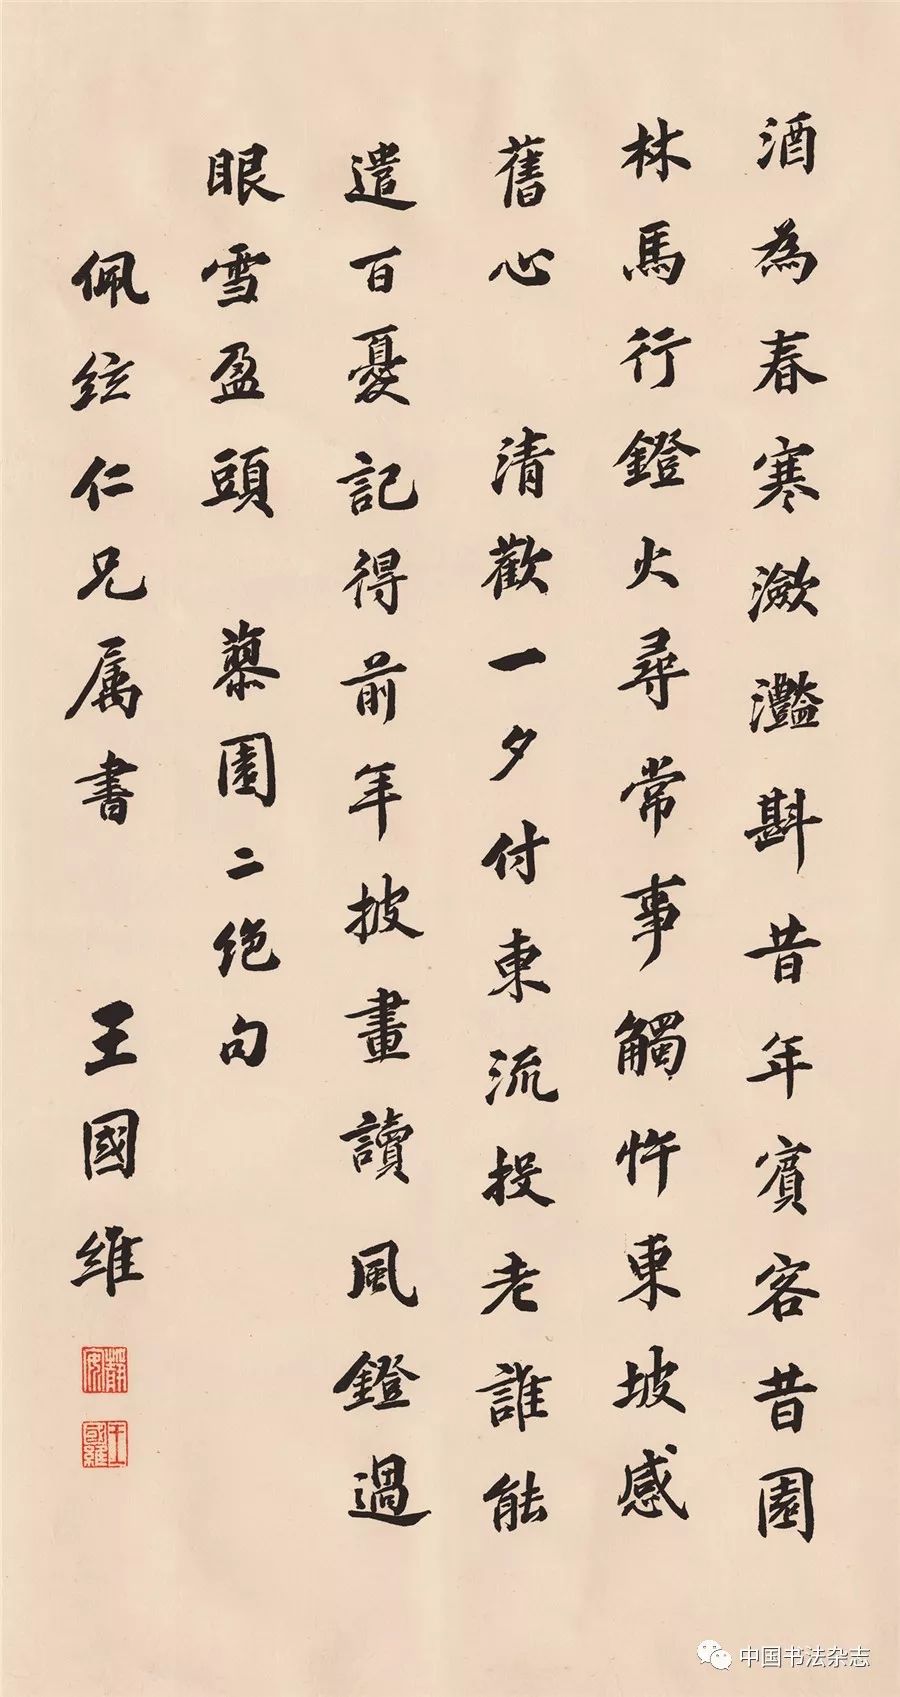 酒為春寒瀲灩斟昔年賓客昔園
林馬行鐙火尋常事觸忤東坡感
舊心 清歡一夕付東流投老誰能
遣百憂記得前年披畫讀風鐙過
眼雪盈頭 園二絕句
佩紘仁兄属書 王國維
靜安
王國維
中国书法杂志